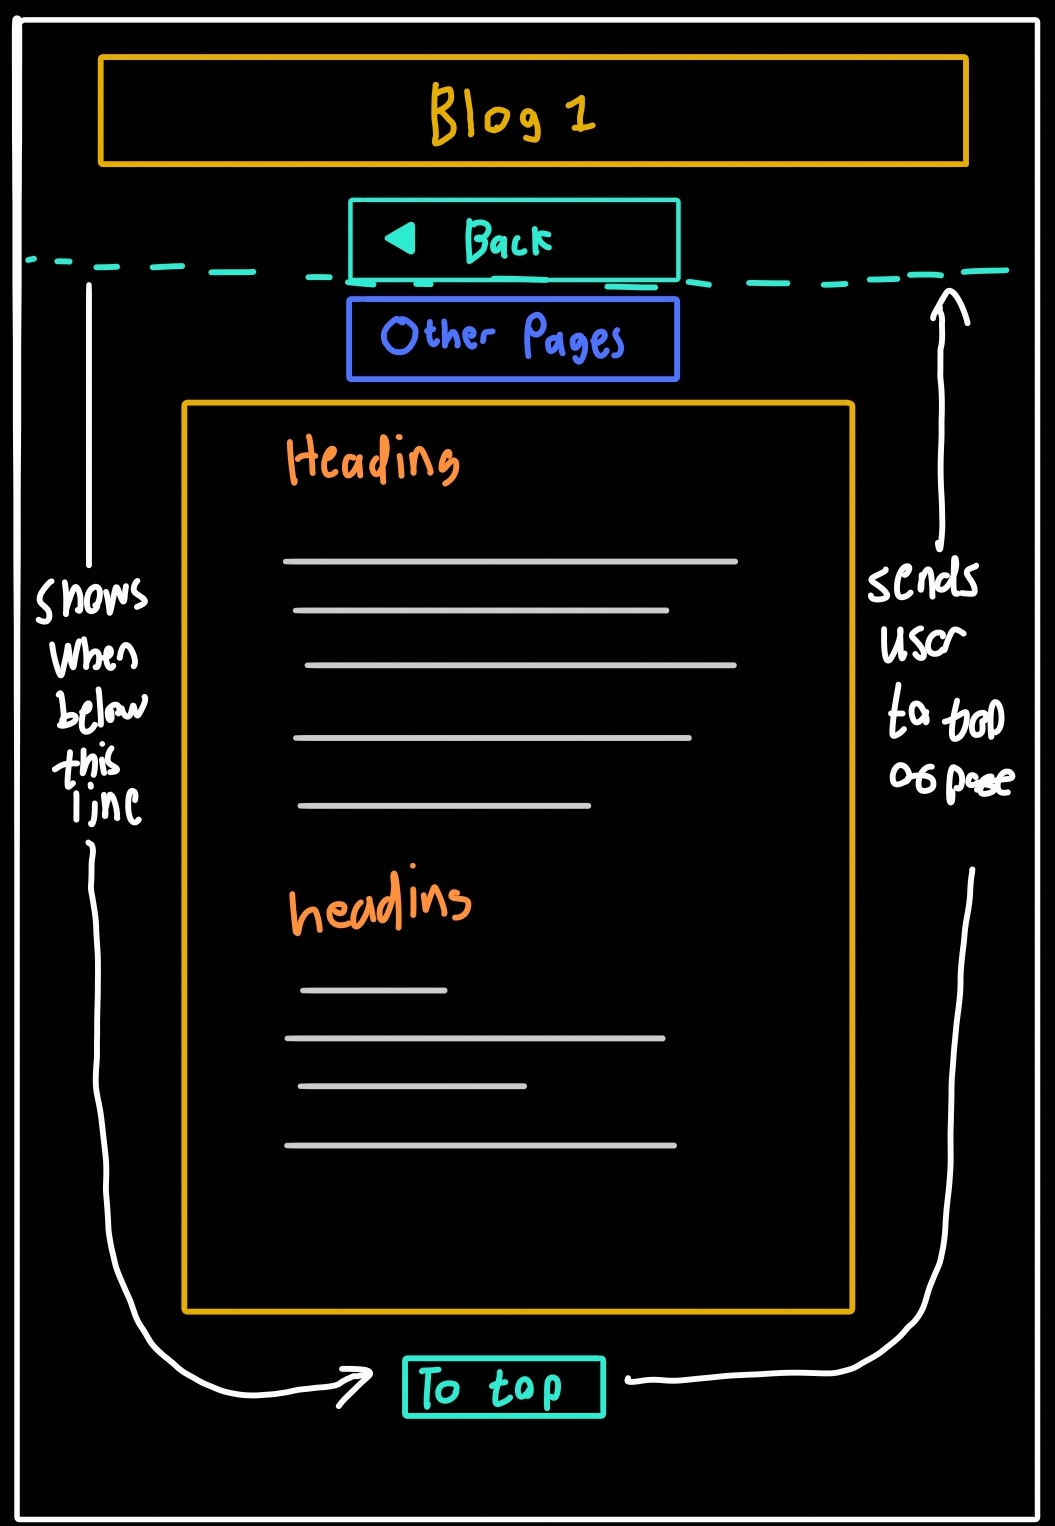 Blog 1
Back
Other Pages
Heading
shows
when
below
this
line
sends
user
to top
of page
heading
To top